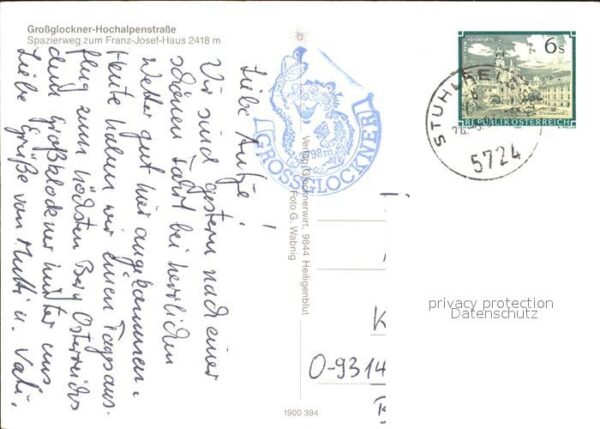 Großglockner-Hochalpenstraße
Spazierweg zum Franz-Josef-Haus 2418 m
Liebe Antje!
Wir sind gestern nach einer
schönen Fahrt bei herrlichem
Wetter gut hier angekommen.
Heute haben wir einen Tagesaus-
flug zum höchsten Berg Österreichs
dem Großglockner hinter uns.
Liebe Grüße von Mutti u. Vati.
3798m
GROSSGLOCKNER
Verlag Glocknerwirt, 9844 Heiligenblut
Foto G. Wabnig
1900 394
6 s
REPUBLIK ÖSTERREICH
STUHLFELDEN
5724
K
O-9314
privacy protection
Datenschutz